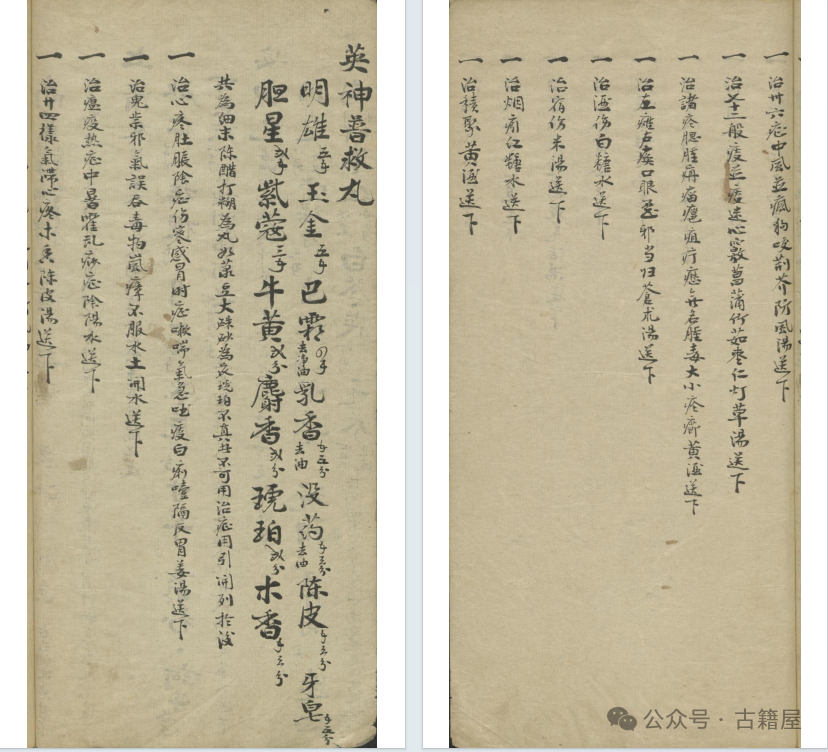 英神普救丸
明雄五子 玉金五子 巴霜四子去净油 乳香子五分去油 没药子三分去油 陈皮子三分 牙皂子五分
胆星弍子 紫蔻三子 牛黄弍分 麝香弍分 琥珀弍分 木香子三分
共為细末陈醋打糊為丸如菉豆大硃砂為衣琥珀不真土不可用治症用引開列於後
一 治心疼肚脹陰症伤寒感冒时症嗽喘氣急吐痰白痢噎隔反胃姜湯送下
一 治鬼祟邪氣誤吞毒物嵐瘴不服水土開水送下
一 治瘟疫熱症中暑霍乱痧症陰陽水送下
一 治廿四樣氣滞心疼木香陈皮湯送下
一 治卅六症中風並瘋狗咬荊芥防風湯送下
一 治七十二般痰症痰迷心竅菖蒲竹茹枣仁灯草湯送下
一 治諸疼腮腫癣瘤癍疽疔瘾無名腫毒大小疮癤黄酒送下
一 治左瘫右痪口眼歪邪当归蒼术湯送下
一 治酒伤白糖水送下
一 治宿伤米湯送下
一 治烟痢红糖水送下
一 治積聚黄酒送下
公众号·古籍屋